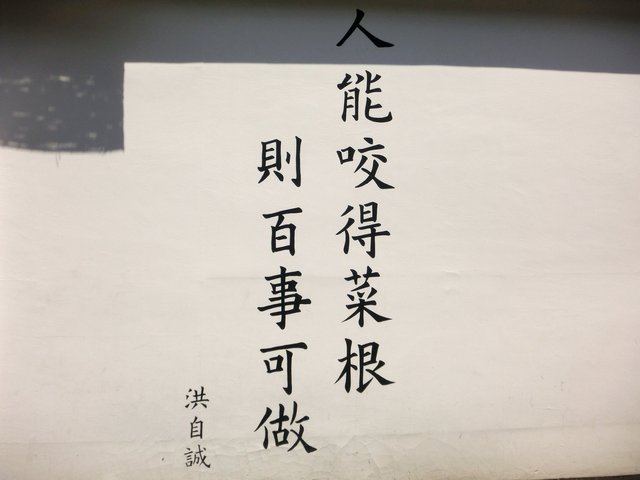 人能咬得菜根
則百事可做
洪自誠